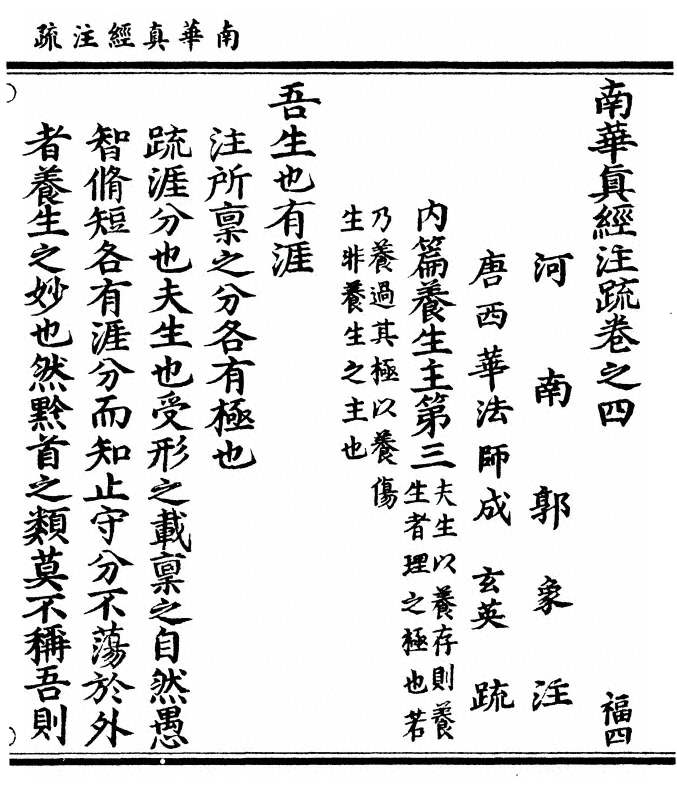 南華真經注疏
南華真經注疏卷之四 福四
河南郭象注
唐西華法師成玄英疏
内篇養生主第三 夫生以養存則養
生者理之極也若
乃養過其極以養傷
生非養生之主也
吾生也有涯
注所稟之分各有極也
疏涯分也夫生也受形之載稟之自然愚
智脩短各有涯分而知止守分不蕩於外
者養生之妙也然黔首之類莫不稱吾則